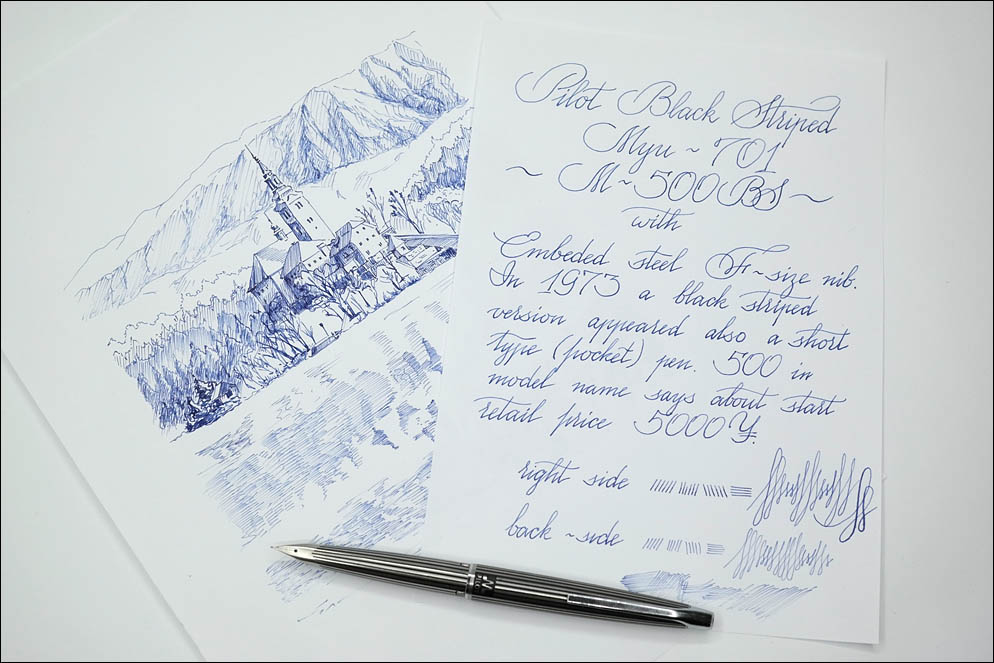 Pilot Black Striped
Myu ~ 701
~ M~500BS ~
with
Embeded steel F~size nib.
In 1973 a black striped
version appeared also a short
type (pocket) pen. 500 in
model name says about start
retail price 5000¥.
right side
back ~side